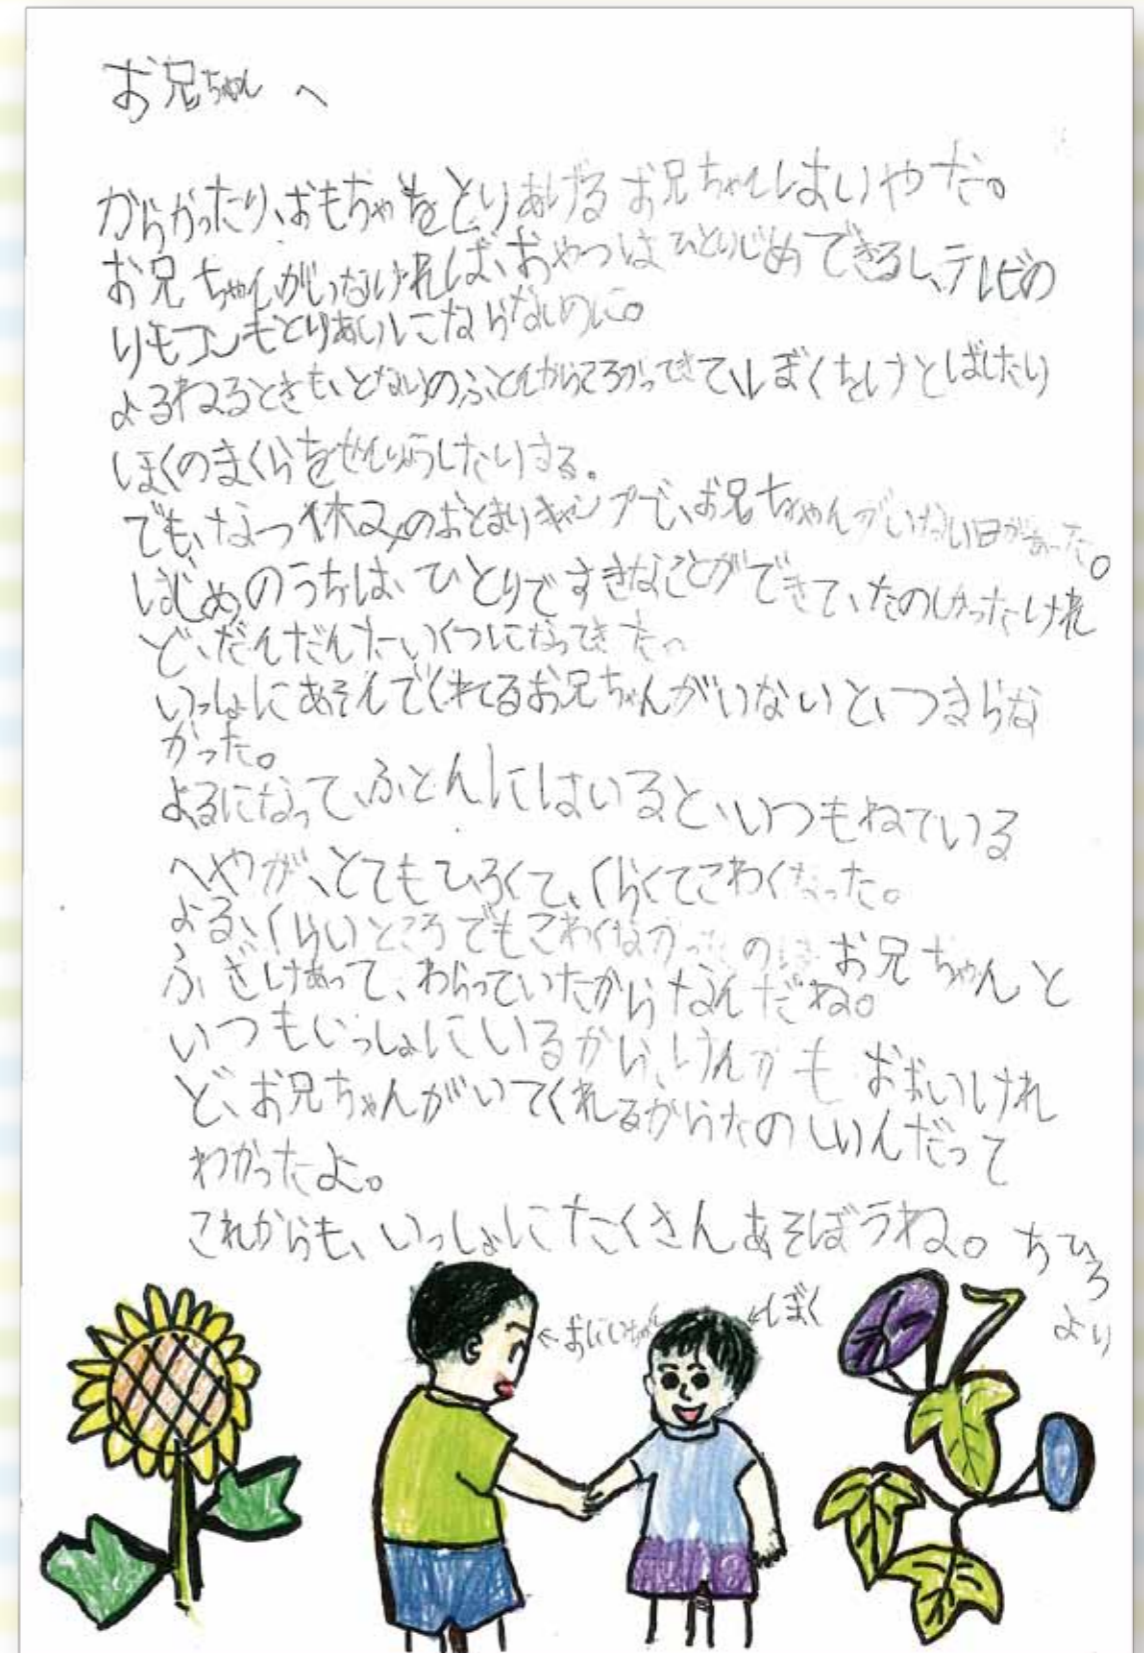 お兄ちゃん へ
からかったり、おもちゃをとりあげるお兄ちゃんはいやだ。
お兄ちゃんがいなければ、おやつはひとりじめできるし、テレビの
リモコンもとりあいにならないのに。
よるねるときも、となりのふとんからころがってきて、ぼくをけとばしたり
ぼくのまくらをせんりょうしたりする。
でも、なつ休みのおとまりキャンプで、お兄ちゃんがいない日があった。
はじめのうちは、ひとりですきなことができて、たのしかったけれ
ど、だんだんたいくつになってきた。
いっしょにあそんでくれてるお兄ちゃんがいないと、つまらな
かった。
よるになって、ふとんにはいると、いつもねている
へやが、とてもひろくて、くらくてこわくなった。
よる、くらいところでもこわくなかったのは お兄ちゃんと
ふざけあって、わらっていたからなんだね。
いつもいっしょにいるから、けんかも おおいけれ
ど、お兄ちゃんがいてくれるからたのしいんだって
わかったよ。
これからも、いっしょにたくさんあそぼうね。 ちひろ
より
←おにいちゃん
←ぼく